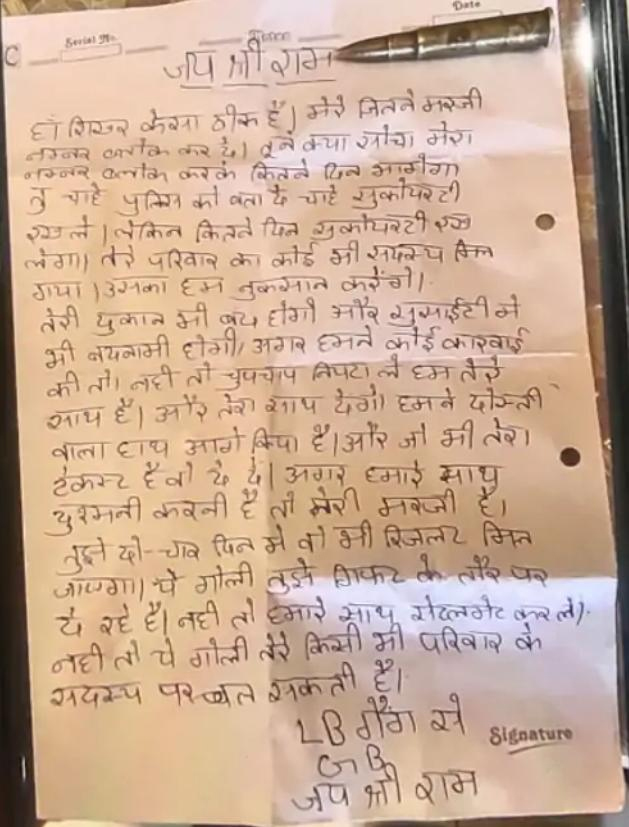 Serial No.
Date
जय श्री राम
हाँ शिखर केसा ठीक है। मेरे जितने मरजी
नम्बर ब्लोक कर दे। तूने क्या सोचा मेरा
नम्बर ब्लोक करके कितने दिन भागेगा
तु चाहे पुलिस को बता दे चाहे सुकोयरटी
रख ले। लेकिन कितने दिन सुकोयरटी रख
लेगा। तेरे परिवार का कोई भी सदस्य मिल
गया। उसका हम नुकसान करेंगे।
तेरी दुकान भी बंद होगी और सुसाईटी मे
भी बदनामी होगी। अगर हमने कोई कारवाई
की तो। नही तो चुपचाप निपटा ले हम तेरे
साथ है। और तेरा साथ देगे। हमने दोस्ती
वाला हाथ आगे किया है। और जो भी तेरा
टेकस्ट है वो दे दे। अगर हमारे साथ
दुश्मनी करनी है तो तेरी मरजी है।
तुझे दो-चार दिन मे वो भी रिजलट मिल
जाएगा। ये गोली तुझे गिफट के तौर पर
दे रहे है। नही तो हमारे साथ सेटलमेट कर ले।
नही तो ये गोली तेरे किसी भी परिवार के
सदस्य पर चल सकती है।
LB गैंग से
GB
Signature
जय श्री राम